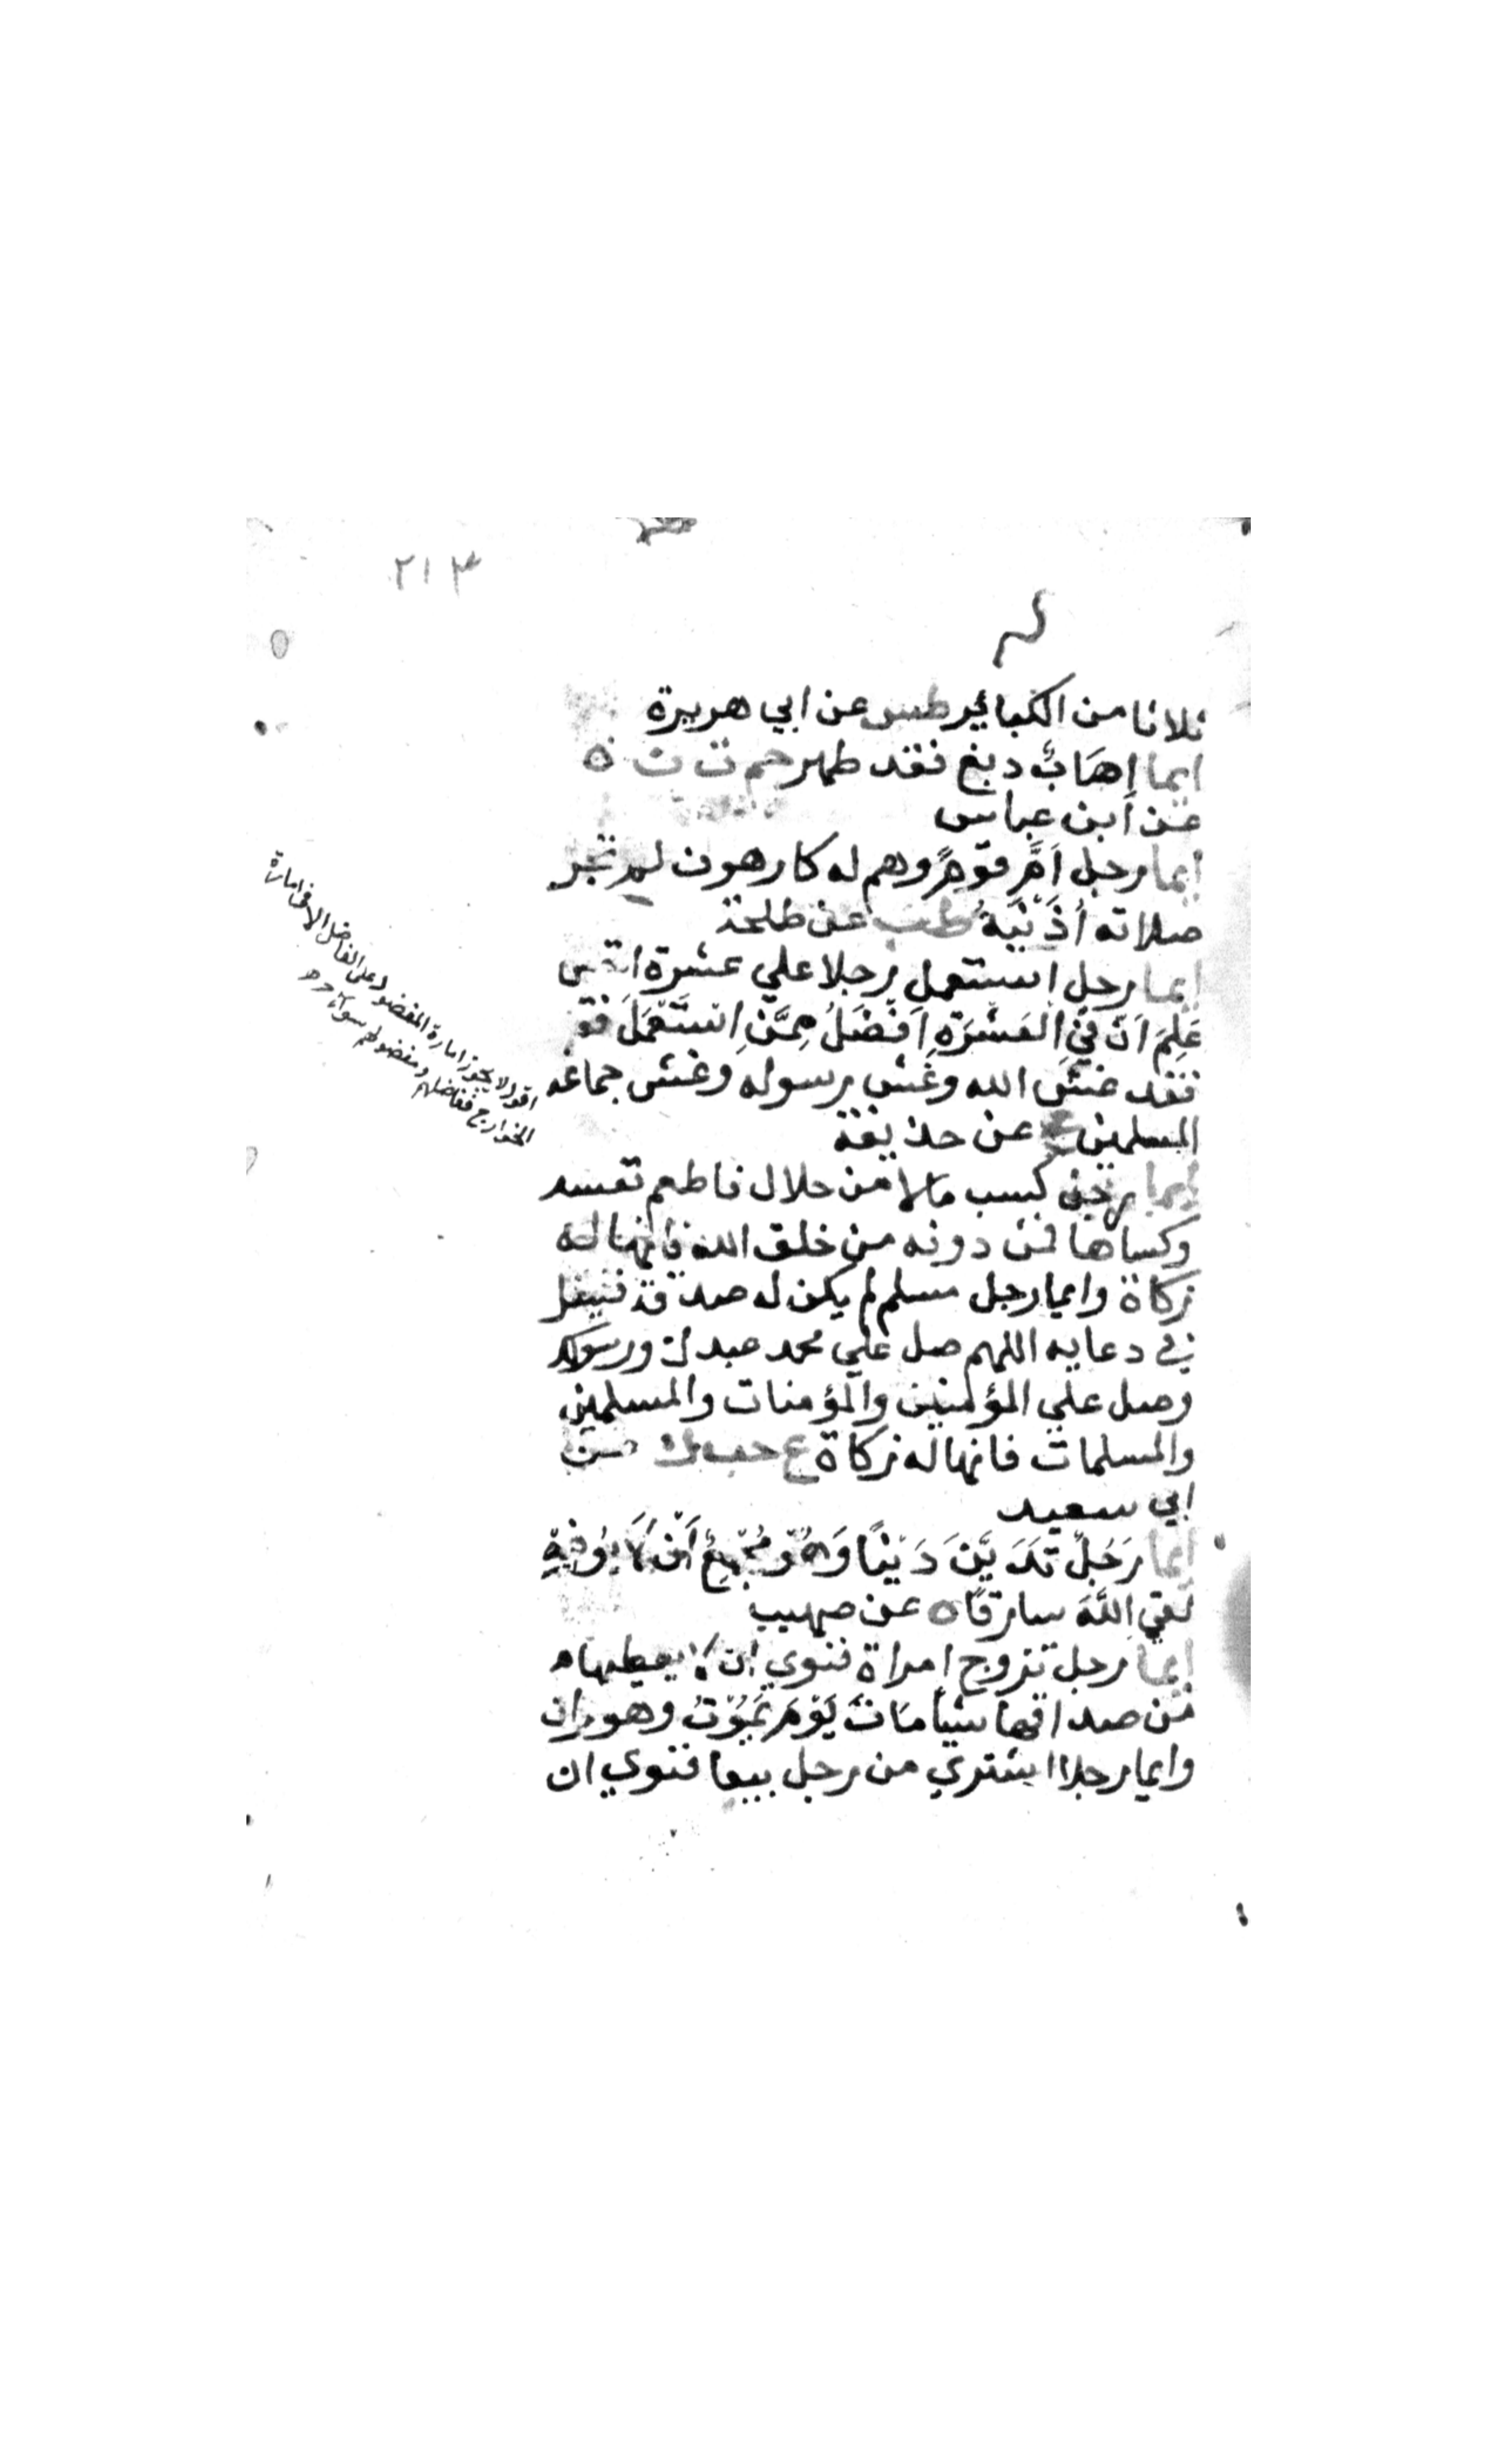 ٢١٣
ثلاثا من الكبائر طس عن ابي هريرة
ايما اهاب دبغ فقد طهر حم ت ن ه
عن ابن عباس
ايما رجل اَمَّ قومًا وهم له كارهون لم تجز
صلاته اُذنيه طب عن طلحة
ايما رجل استعمل رجلا علي عشرة انفس
عَلِمَ اَنَّ في العَشَرَةِ اَفْضَلُ مِمَّنِ اسْتَعْمَلَ
فقد غش الله وغش رسوله وغش جماعة
المسلمين ع عن حذيفة
ايما رجل كسب مالا من حلال فاطعم نفسه
وكساها فمن دونه من خلق الله فانها له
زكاة وايما رجل مسلم لم يكن له صدقة فليقل
في دعايه اللهم صل علي محمد عبدك ورسولك
وصل علي المؤمنين والمؤمنات والمسلمين
والمسلمات فانها له زكاة ع حب ك عن
ابي سعيد
ايما رَجُلٍ تَدَيَّنَ دَيْنًا وَهُوَ مُجْمِعٌ أَنْ لَا يُوفِيَهُ
لقي اللهَ سارقًا ه عن صهيب
ايما رجل تزوج امراة فنوي ان لا يعطيها
من صداقها شيأ مَاتَ يَوْمَ يَمُوْتُ وهو زان
وايما رجل اشتري من رجل بيعا فنوي ان
اقول لا يجوز امارة المفضول على الفاضل الا في امارة
الخوارج ففاضلهم ومفضولهم سواء